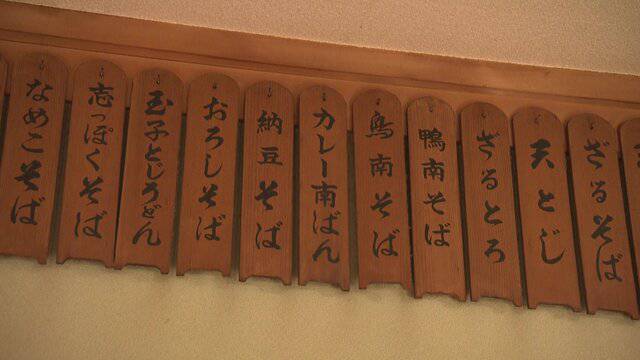 ざるそば
天とじ
ざるとろ
鴨南そば
鳥南そば
カレー南ばん
納豆そば
おろしそば
玉子とじうどん
志っぽくそば
なめこそば